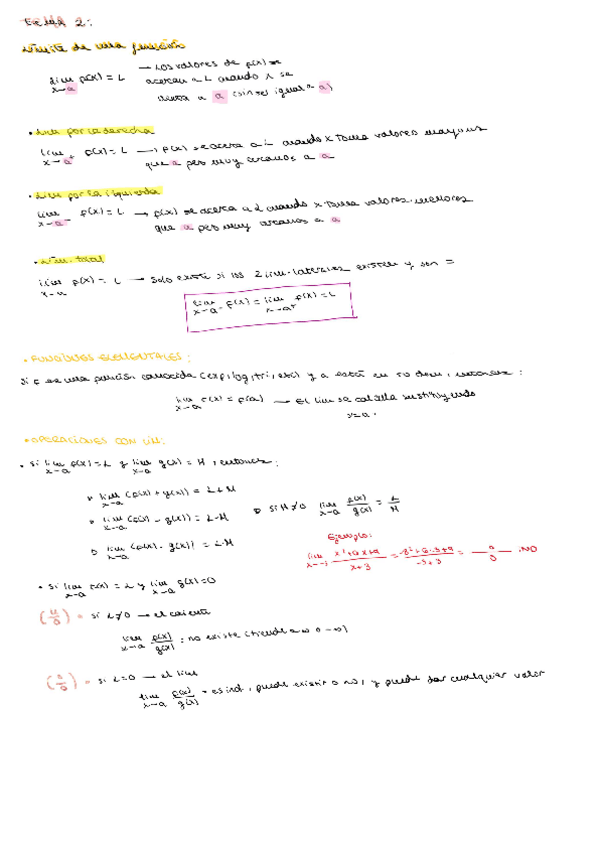 TEMA 2:
Límite de una función
lim f(x) = L → Los valores de f(x) se
x→a acercan a L cuando x se
acerca a a (sin ser igual a a)
• Lim por la derecha
lim f(x) = L → f(x) se acerca a L cuando x toma valores mayores
x→a⁺ que a pero muy cercanos a a
• Lim por la izquierda
lim f(x) = L → f(x) se acerca a L cuando x toma valores menores
x→a⁻ que a pero muy cercanos a a
• Lim. total
lim f(x) = L → Solo existe si los 2 lim. laterales existen y son =
x→a
lim f(x) = lim f(x) = L
x→a⁻ x→a⁺
• FUNCIONES ELEMENTALES:
Si f es una función conocida (exp, log, tri, etc) y a está en su dom, entonces:
lim f(x) = f(a) → El lim se calcula sustituyendo
x→a x=a.
• OPERACIONES CON LIM:
• Si lim f(x) = L y lim g(x) = M, entonces:
x→a x→a
lim (f(x) + g(x)) = L+M
x→a
lim (f(x) - g(x)) = L-M
x→a
Si M≠0 lim f(x)/g(x) = L/M
x→a
lim (f(x) · g(x)) = L·M
x→a
Ejemplo:
x+3 -3+3 0
• Si lim f(x) = L y lim g(x) = 0
x→a x→a
= Si L≠0 → el cociente
lim f(x)/g(x) : no existe
x→a
(0/0) = Si L=0 → el lim
lim f(x)/g(x) = es ind, puede existir o no, y puede dar cualquier valor
x→a